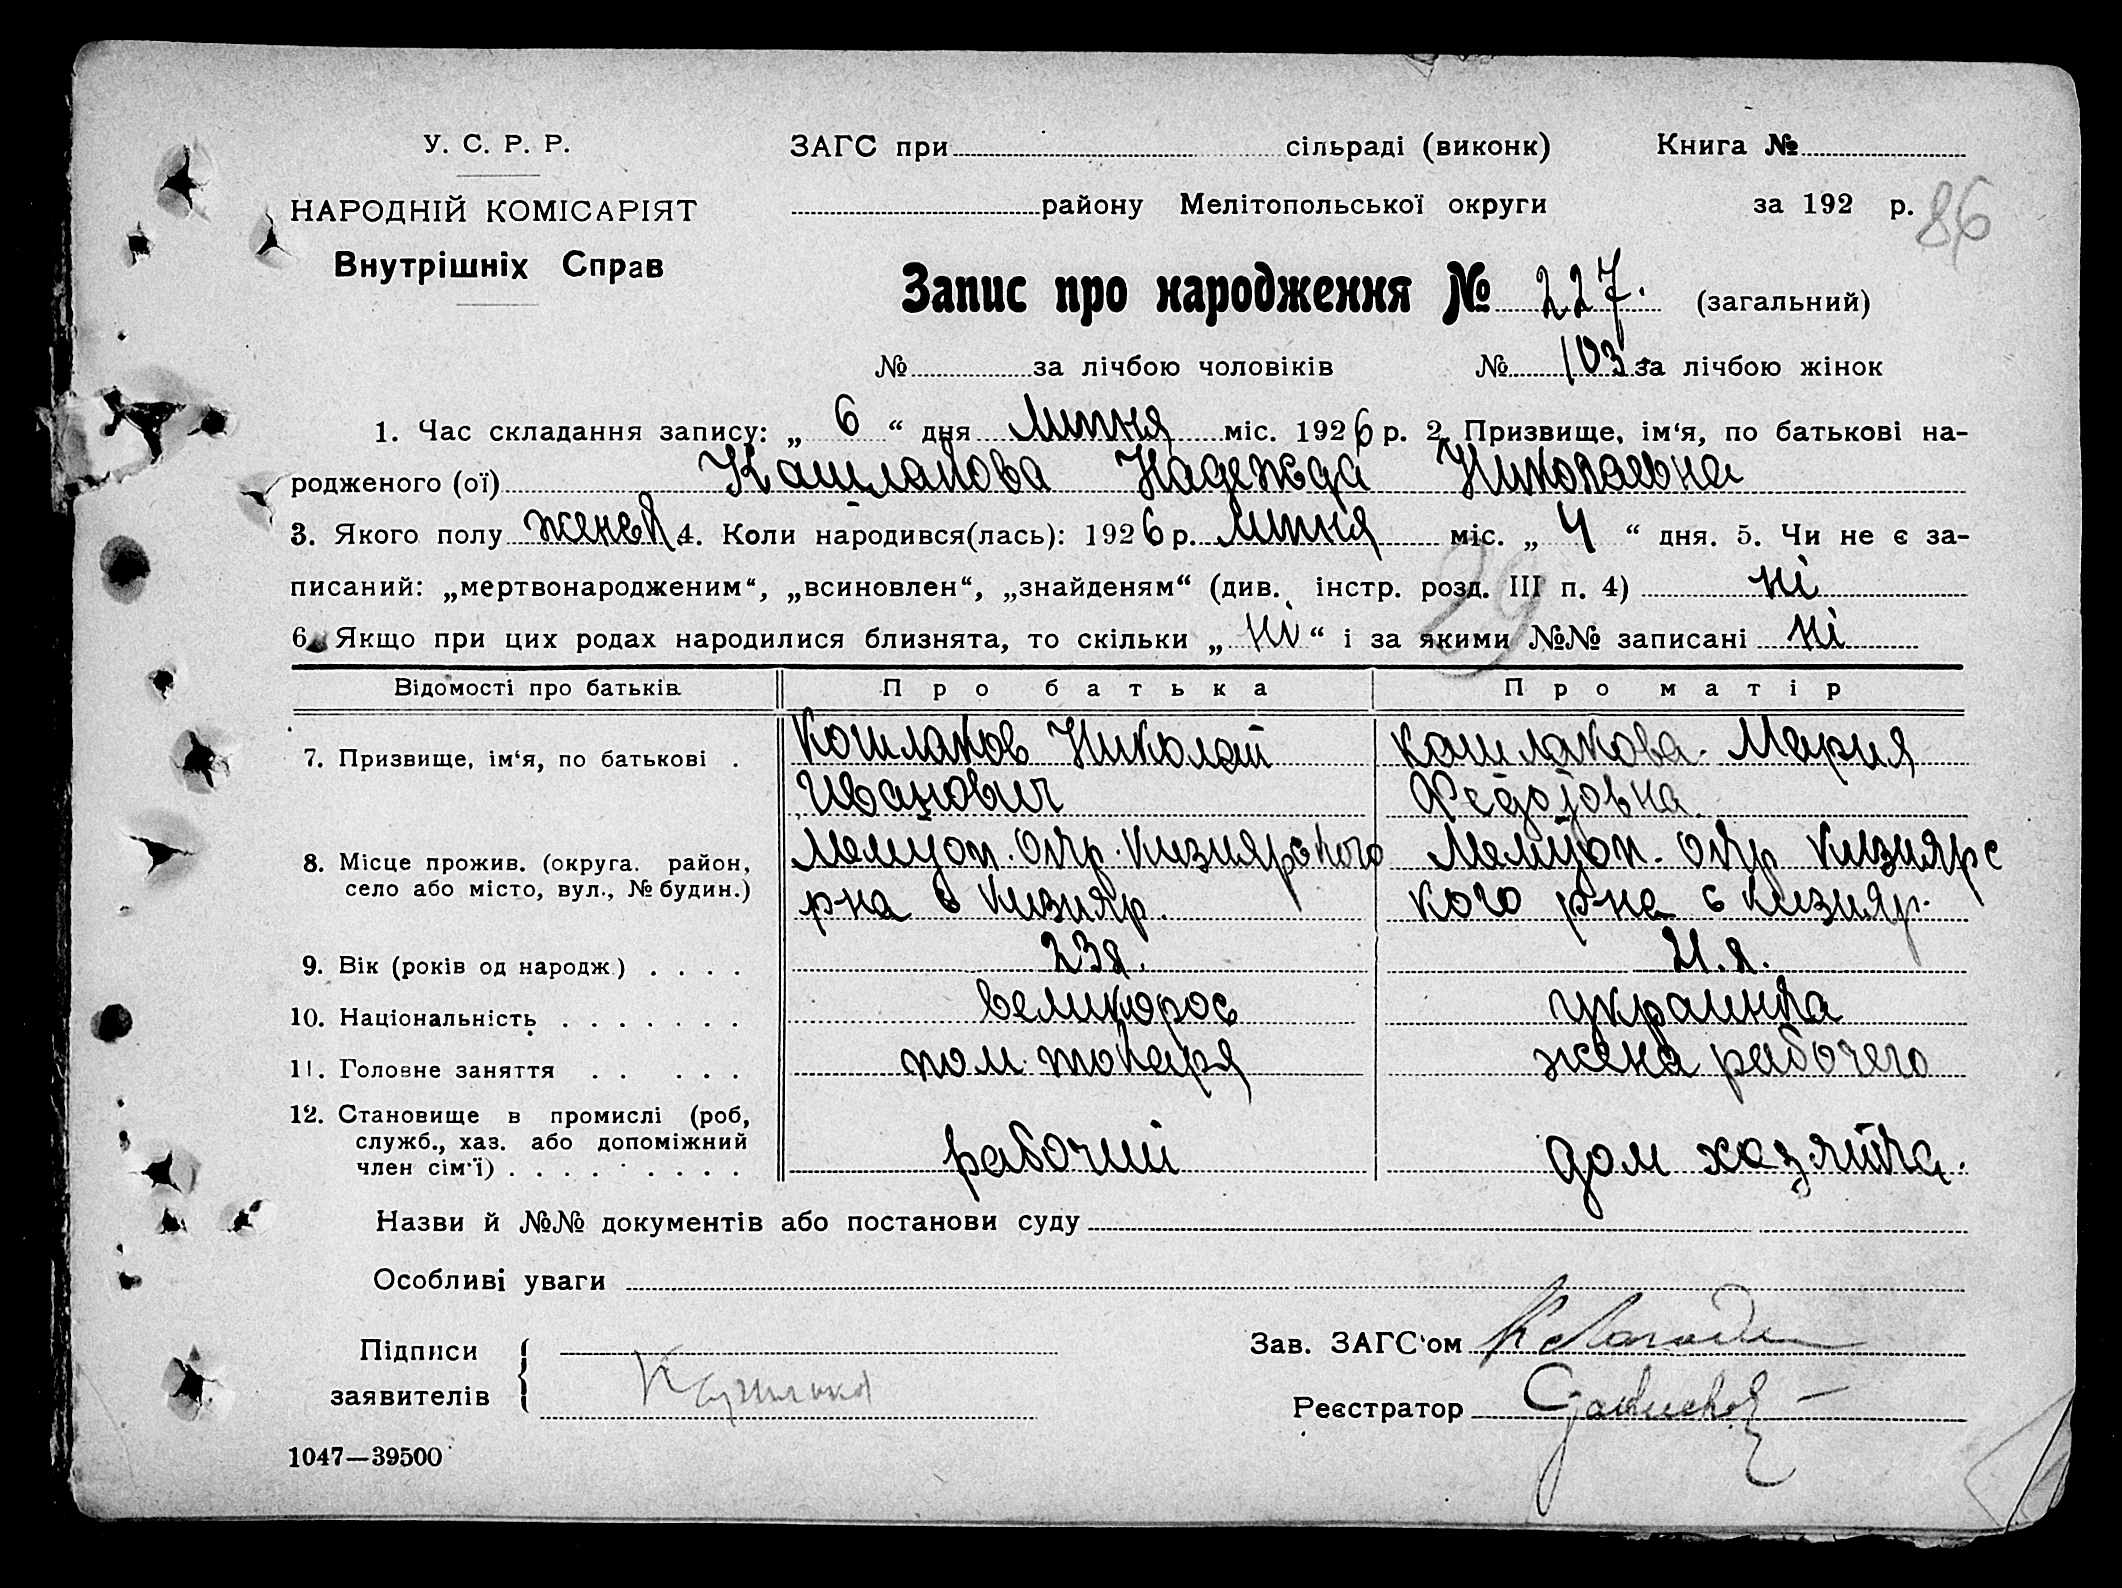 У. С. Р. Р.
НАРОДНІЙ КОМІСАРІЯТ
Внутрішніх Справ
ЗАГС при сільраді (виконк) Книга №
району Мелітопольської округи за 192 р.
86
Запис про народження № 227. (загальний)
№ за лічбою чоловіків № 103 за лічбою жінок
1. Час складання запису: „ 6 “ дня липня міс. 1926 р. 2. Призвище, ім‘я, по батькові на-
родженого (ої) Кашлакова Надежда Николаевна
3. Якого полу женск 4. Коли народився(лась): 1926 р. липня міс. „ 4 “ дня. 5. Чи не є за-
писаний: „мертвонародженим“, „всиновлен“, „знайденям“ (див. інстр. розд. III п. 4) ні
29
6. Якщо при цих родах народилися близнята, то скільки „ ні “ і за якими №№ записані ні
Відомості про батьків Про батька Про матір
7. Призвище, ім‘я, по батькові . Кошлаков Николай Кашлакова Мария
Иванович Федоровна
8. Місце прожив. (округа. район, Мелитоп. окр. Кизиярского Мелитоп. окр Кизиярс
село або місто, вул., № будин.) рна с Кизияр. кого рна с Кизияр.
9. Вік (років од народж.) . . . . 23 г. 21. г.
10. Національність . . . . . . . великорос украинка
11. Головне заняття . . . . . пом. токаря жена рабочего
12. Становище в промислі (роб,
служб., хаз. або допоміжний
член сім‘ї) . . . . . . . . . рабочий дом хозяйка.
Назви й №№ документів або постанови суду
Особливі уваги
Підписи
заявителів
Зав. ЗАГС‘ом
Реєстратор
1047—39500